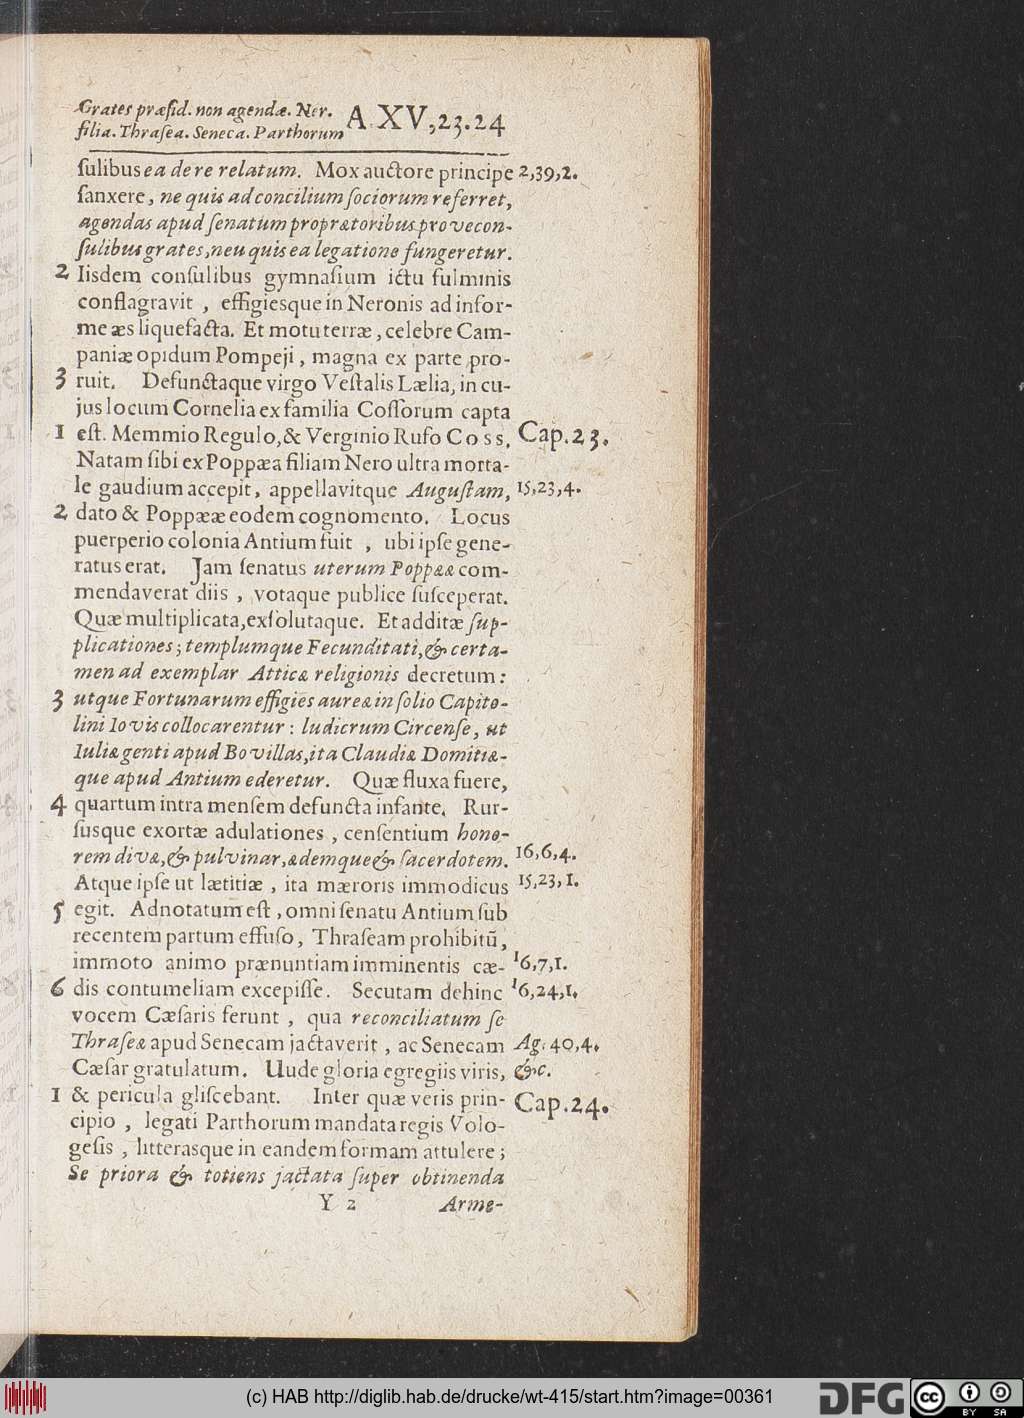 Grates præſid. non agendæ. Ner.
filia. Thraſea. Seneca. Parthorum A. XV, 23.24
ſulibus ea de re relatum. Mox auctore principe 2,39,2.
ſanxere, ne quis ad concilium ſociorum referret,
agendas apud ſenatum proprætoribus prove con-
ſulibus grates, neu quis ea legatione fungeretur.
2 Iisdem conſulibus gymnaſium ictu fulminis
conflagravit , effigiesque in Neronis ad infor-
me æs liquefacta. Et motu terræ, celebre Cam-
paniæ opidum Pompeji, magna ex parte pro-
3 ruit. Defunctaque virgo Veſtalis Lælia, in cu-
jus locum Cornelia ex familia Coſſorum capta
1 eſt. Memmio Regulo, & Verginio Rufo Coss. Cap.23.
Natam ſibi ex Poppæa filiam Nero ultra morta-
le gaudium accepit, appellavitque Auguſtam, 15,23,4.
2 dato & Poppææ eodem cognomento. Locus
puerperio colonia Antium fuit , ubi ipſe gene-
ratus erat. Jam ſenatus uterum Poppææ com-
mendaverat diis , votaque publice ſuſceperat.
Quæ multiplicata, exſolutaque. Et additæ ſup-
plicationes; templumque Fecunditati, & certa-
men ad exemplar Atticæ religionis decretum:
3 utque Fortunarum effigies aureæ in ſolio Capito-
lini Iovis collocarentur: ludicrum Circenſe, ut
Iuliæ genti apud Bovillas, ita Claudiæ Domitiæ-
que apud Antium ederetur. Quæ fluxa fuere,
4 quartum intra menſem defuncta infante. Rur-
ſusque exortæ adulationes , cenſentium hono-
rem divæ, & pulvinar, ædemque & ſacerdotem. 16,6,4.
Atque ipſe ut lætitiæ , ita mæroris immodicus 15,23,1.
5 egit. Adnotatum eſt, omni ſenatu Antium ſub
recentem partum effuſo, Thraſeam prohibitũ,
immoto animo prænuntiam imminentis cæ- 16,7,1.
6 dis contumeliam excepiſſe. Secutam dehinc 16,24,1.
vocem Cæſaris ferunt , qua reconciliatum ſe
Thraſeæ apud Senecam jactaverit , ac Senecam Ag. 40,4.
Cæſar gratulatum. Uude gloria egregiis viris, &c.
1 & pericula gliſcebant. Inter quæ veris prin- Cap.24.
cipio , legati Parthorum mandata regis Volo-
geſis , litterasque in eandem formam attulere;
Se priora & totiens jactata ſuper obtinenda
Y 2 Arme-
(c) HAB http://diglib.hab.de/drucke/wt-415/start.htm?image=00361
DFG
cc BY SA